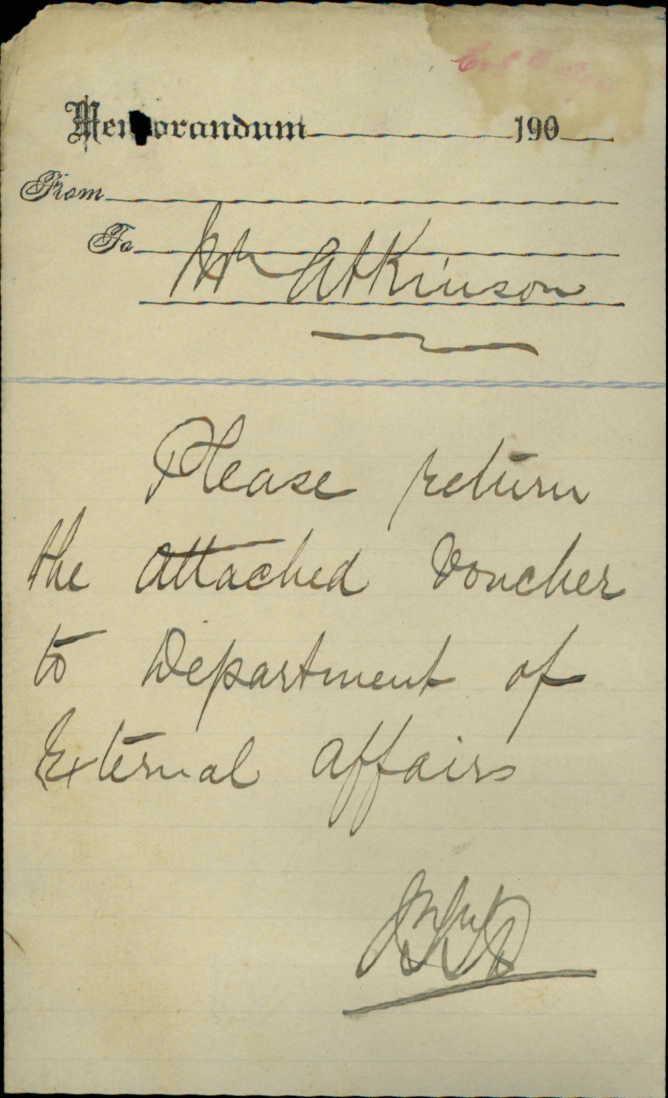 Memorandum 190
From
To Mr Atkinson
Please return
the attached Voucher
to Department of
External Affairs